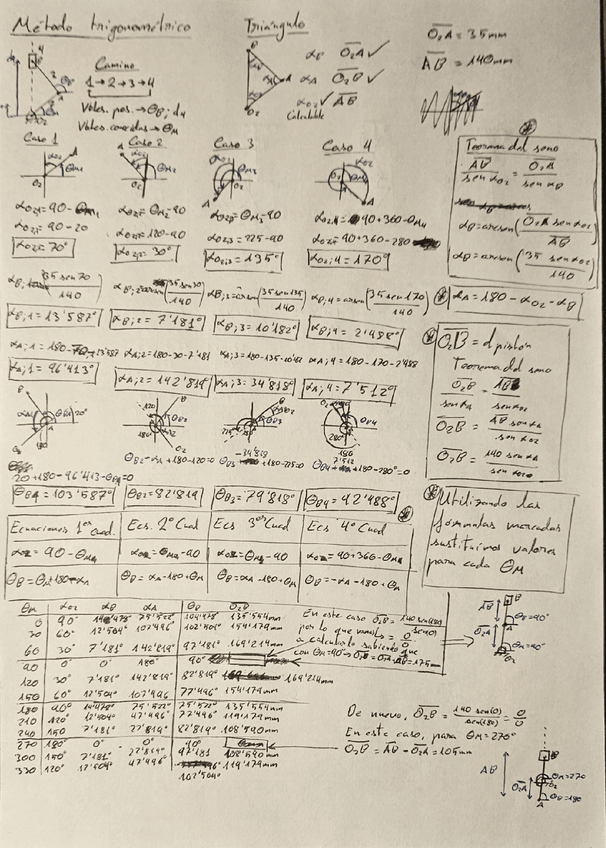 Método trigonométrico
Triángulo
O₂A = 35mm
AB = 140mm
Camino
1→2→3→4
Valor. pos. → θB; d4
Valores conocidos → θM
αB O₂A ✓
αA O₂B ✓
αO2 ✓ AB
Calculable
Teorema del seno
AB / sen αO2 = O₂A / sen αB
αB = arcsen (O₂A sen αO2 / AB)
αB = arcsen (35 sen αO2 / 140)
Caso 1
Caso 2
Caso 3
Caso 4
αO2,1 = 90 - θM1
αO2,2 = θM2 - 90
αO2,3 = θM3 - 90
αO2,4 = 90 + 360 - θM4
αO2,1 = 90 - 20
αO2,2 = 120 - 90
αO2,3 = 225 - 90
αO2,4 = 90 + 360 - 280
αO2,1 = 70°
αO2,2 = 30°
αO2,3 = 135°
αO2,4 = 170°
αB,1 (35 sen 70 / 140)
αB,2 = arcsen (35 sen 30 / 140)
αB,3 = arcsen (35 sen 135 / 140)
αB,4 = arcsen (35 sen 170 / 140)
αA = 180 - αO2 - αB
αB,1 = 13'587°
αB,2 = 7'181°
αB,3 = 10'182°
αB,4 = 2'488°
αA,1 = 180 - 70 - 13'587
αA,2 = 180 - 30 - 7'181
αA,3 = 180 - 135 - 10'182
αA,4 = 180 - 170 - 2'488
αA,1 = 96'413°
αA,2 = 142'819°
αA,3 = 34'818°
αA,4 = 7'512°
O₂B = d pistón
Teorema del seno
O₂B / sen αA = AB / sen αO2
O₂B = AB sen αA / sen αO2
O₂B = 140 sen αA / sen αO2
20 + 180 - 96'413 - θB1 = 0
θB2 - αA + 180 - 120 = 0
θB3 - 34'818 + 180 - 225 = 0
θB4 + 7'512 + 180 - 280° = 0
θB1 = 103'587°
θB2 = 82'819
θB3 = 79'818°
θB4 = 92'488°
Utilizando las
fórmulas marcadas
sustituimos valores
para cada θM
Ecuaciones 1er Cuad.
Ecs. 2º Cuad
Ecs 3er Cuad
Ecs 4º Cuad
αO2 = 90 - θM
αO2 = θM - 90
αO2 = θM - 90
αO2 = 90 + 360 - θM
θB = θM + 180 - αA
θB = αA - 180 + θM
θB = αA - 180 + θM
θB = -αA - 180 + θM
θM αO2 αB αA θB O₂B
0 90° 14'478° 75'522° 104'478° 135'554mm
30 60° 12'504° 107'496 102'504° 154'179mm
60 30° 7'181° 142'819° 97'181° 169'214mm
90 0° 0° 180° 90°
120 30° 7'181° 142'819° 82'819° 169'214mm
150 60° 12'504° 107'496 77'496° 154'179mm
180 90° 14'478° 75'522° 75'522° 135'554mm
210 120° 12'504° 47'496° 77'496° 119'179mm
240 150° 7'181° 22'819° 82'819° 108'590mm
270 180° 0° 0° 90°
300 150° 7'181° 22'819° 97'181 108'590mm
330 120° 12'504° 47'496° 102'504° 119'179mm
En este caso O₂B = 140 sen(180) / sen(0) = 0/0
por lo que vamos
a calcularlo sabiendo que
con θM = 90 → O₂B = O₂A + AB = 175mm
De nuevo, O₂B = 140 sen(0) / sen(180) = 0/0
En este caso, para θM = 270°
O₂B = AB - O₂A = 105mm
AB
B
θB = 90°
O₂A
A
θM = 90°
O₂
AB
B
θM = 270
O₂A
O₂
A